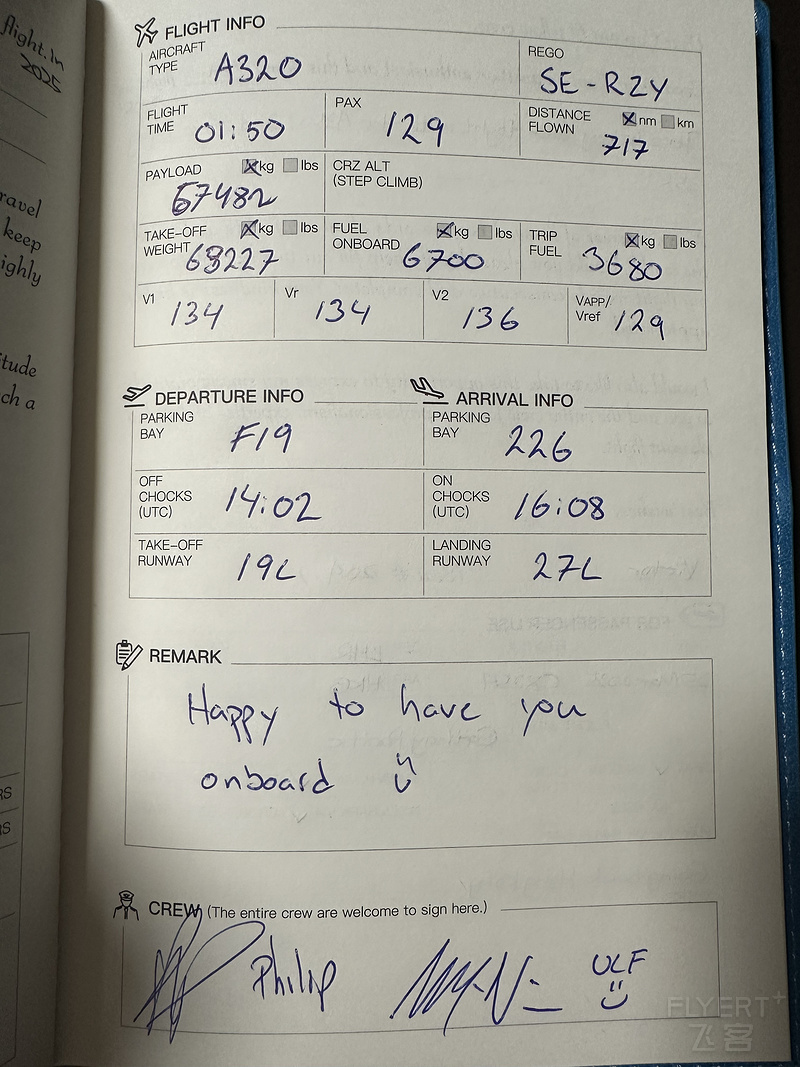 flight. In
2025
ravel
keep
ighly
itude
ch a
RS
RS
FLIGHT INFO
AIRCRAFT TYPE A320
REGO SE-RZY
FLIGHT TIME 01:50
PAX 129
DISTANCE FLOWN nm km
717
PAYLOAD kg lbs
67482
CRZ ALT (STEP CLIMB)
TAKE-OFF WEIGHT kg lbs
68227
FUEL ONBOARD kg lbs
6700
TRIP FUEL kg lbs
3680
V1 134
Vr 134
V2 136
VAPP/ Vref 129
DEPARTURE INFO
PARKING BAY F19
OFF CHOCKS (UTC) 14:02
TAKE-OFF RUNWAY 19L
ARRIVAL INFO
PARKING BAY 226
ON CHOCKS (UTC) 16:08
LANDING RUNWAY 27L
REMARK
Happy to have you
onboard
CREW (The entire crew are welcome to sign here.)
Philip
ULF
FLYERT+
飞客